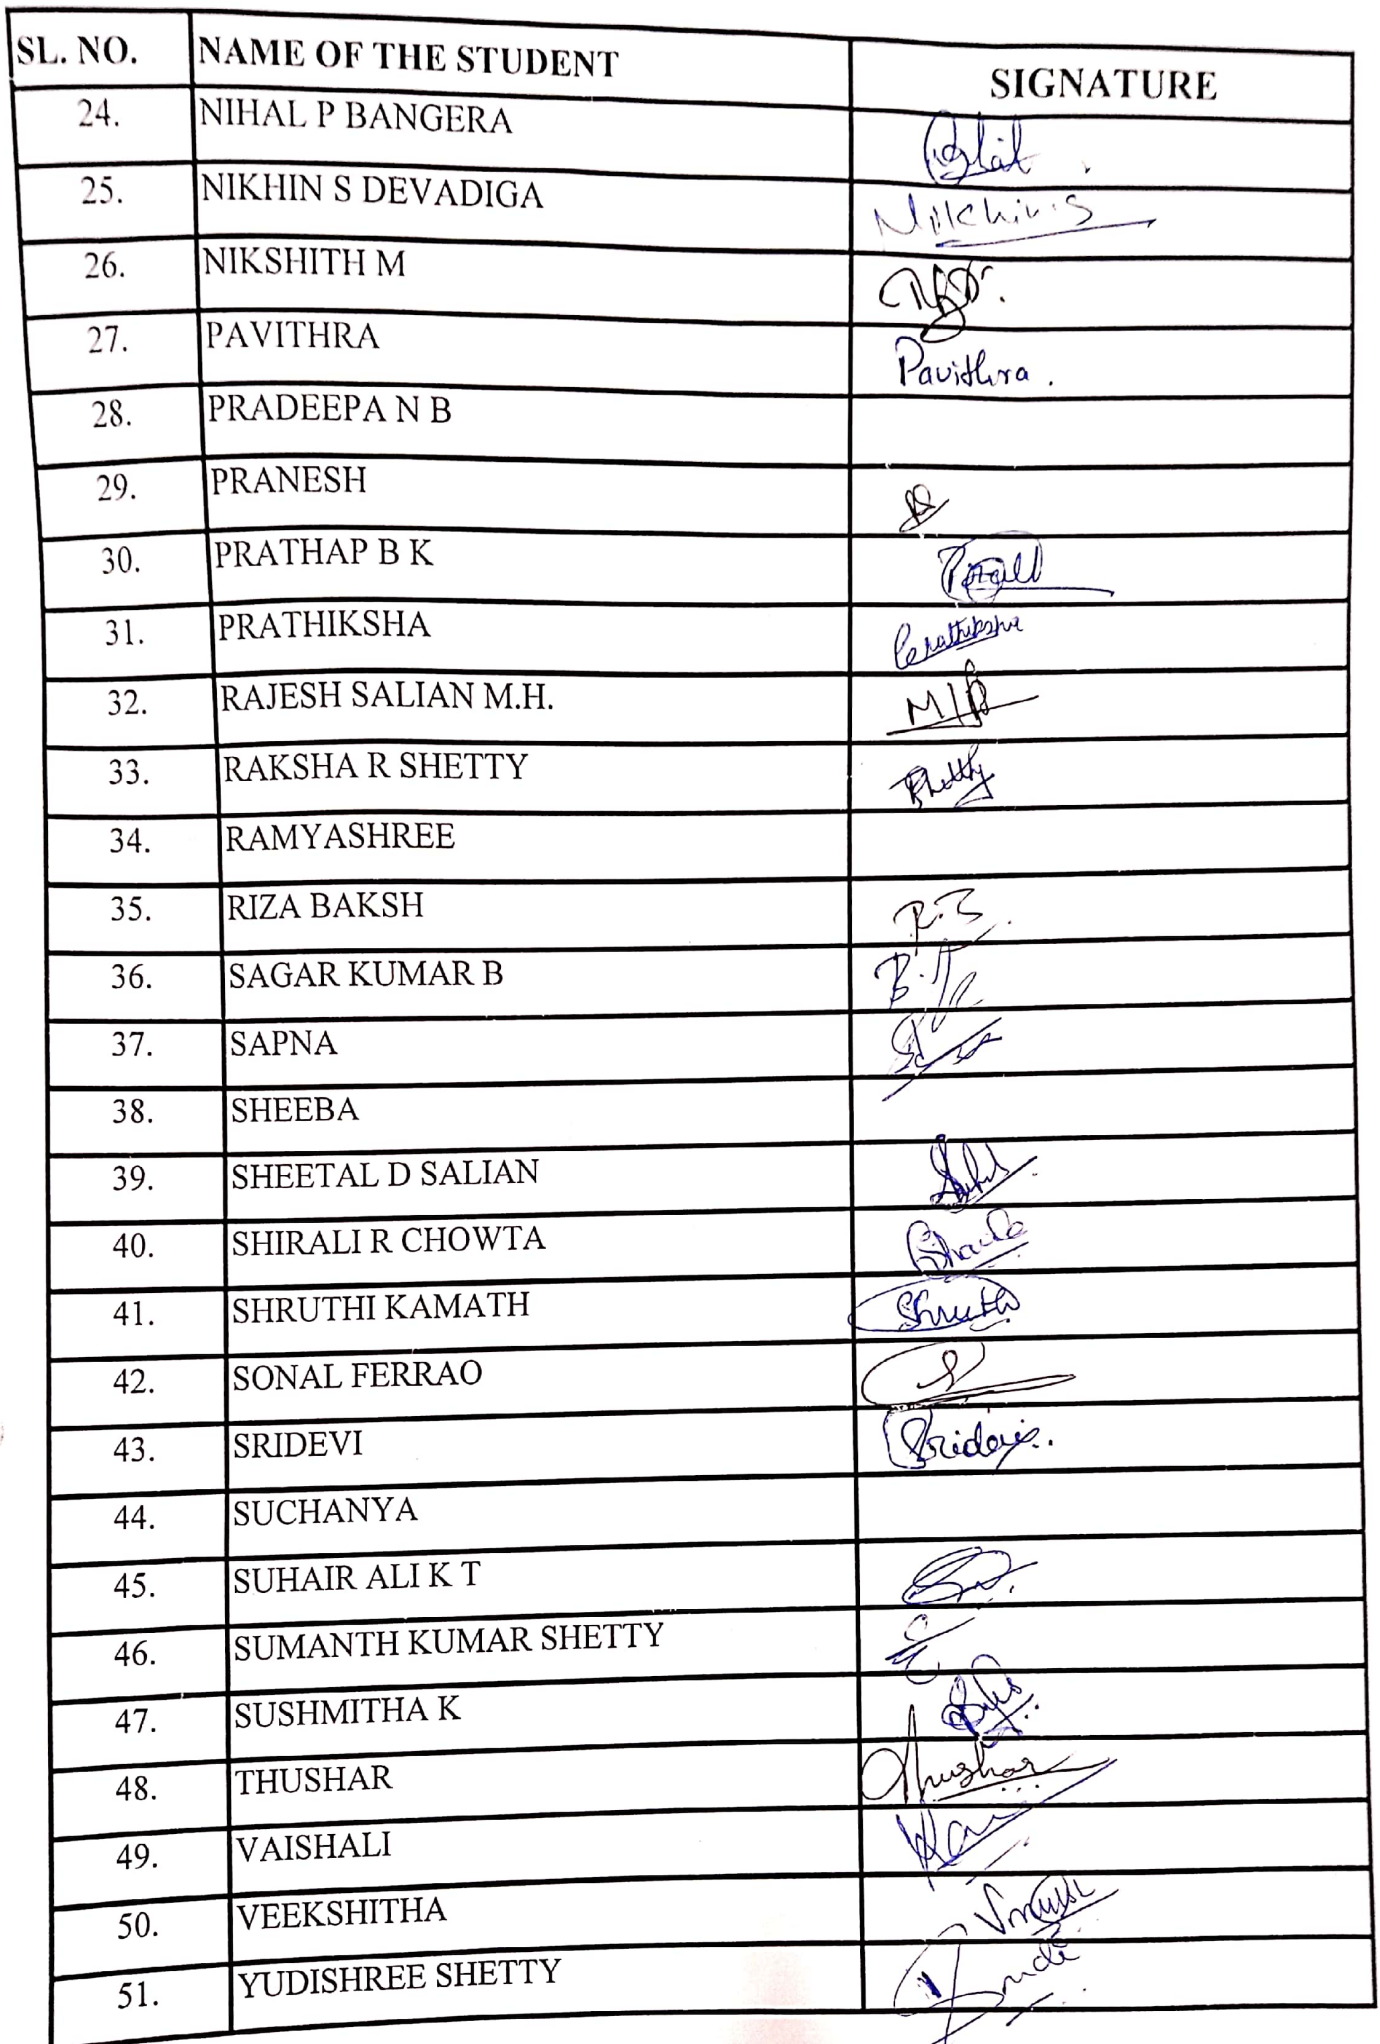 SL. NO. NAME OF THE STUDENT SIGNATURE
24. NIHAL P BANGERA
25. NIKHIN S DEVADIGA Nikhin.S
26. NIKSHITH M
27. PAVITHRA Pavithra.
28. PRADEEPA N B
29. PRANESH
30. PRATHAP B K
31. PRATHIKSHA Prathiksha
32. RAJESH SALIAN M.H.
33. RAKSHA R SHETTY
34. RAMYASHREE
35. RIZA BAKSH R.B
36. SAGAR KUMAR B
37. SAPNA
38. SHEEBA
39. SHEETAL D SALIAN
40. SHIRALI R CHOWTA
41. SHRUTHI KAMATH Shruthi
42. SONAL FERRAO
43. SRIDEVI Sridevi.
44. SUCHANYA
45. SUHAIR ALI K T
46. SUMANTH KUMAR SHETTY
47. SUSHMITHA K
48. THUSHAR Thushar
49. VAISHALI
50. VEEKSHITHA
51. YUDISHREE SHETTY